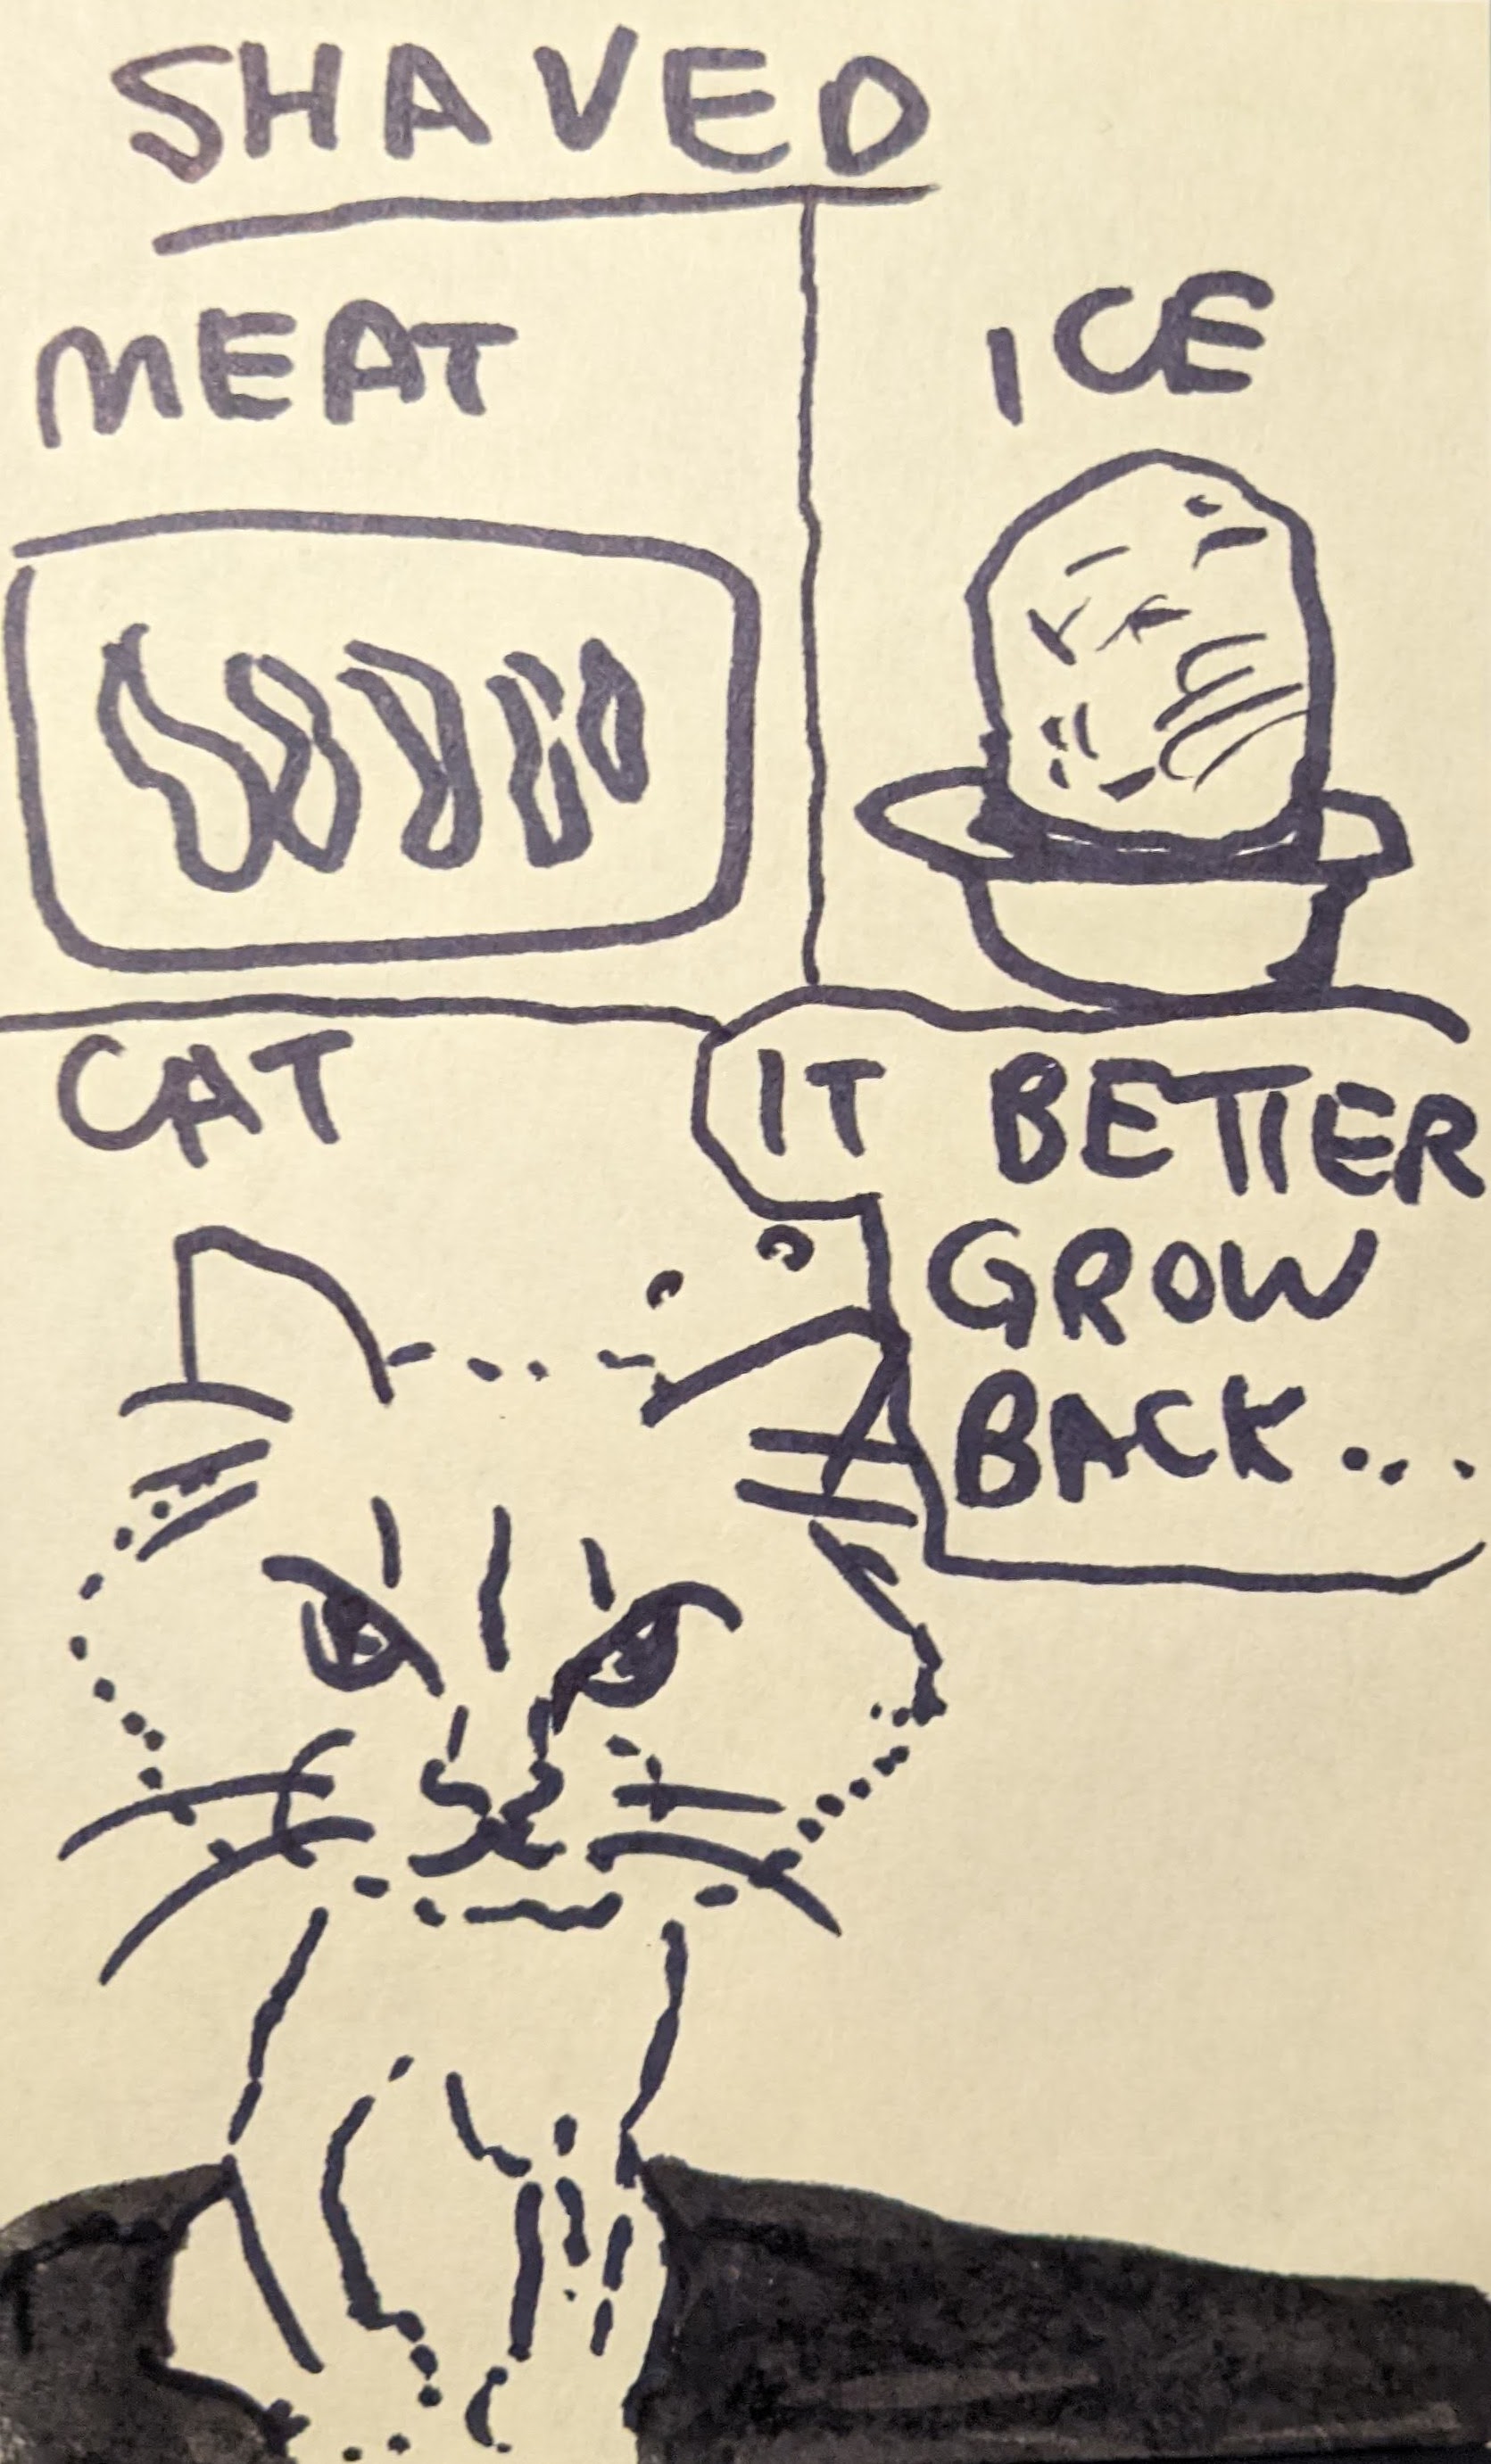 SHAVED
MEAT
ICE
CAT
IT BETTER
GROW
BACK...